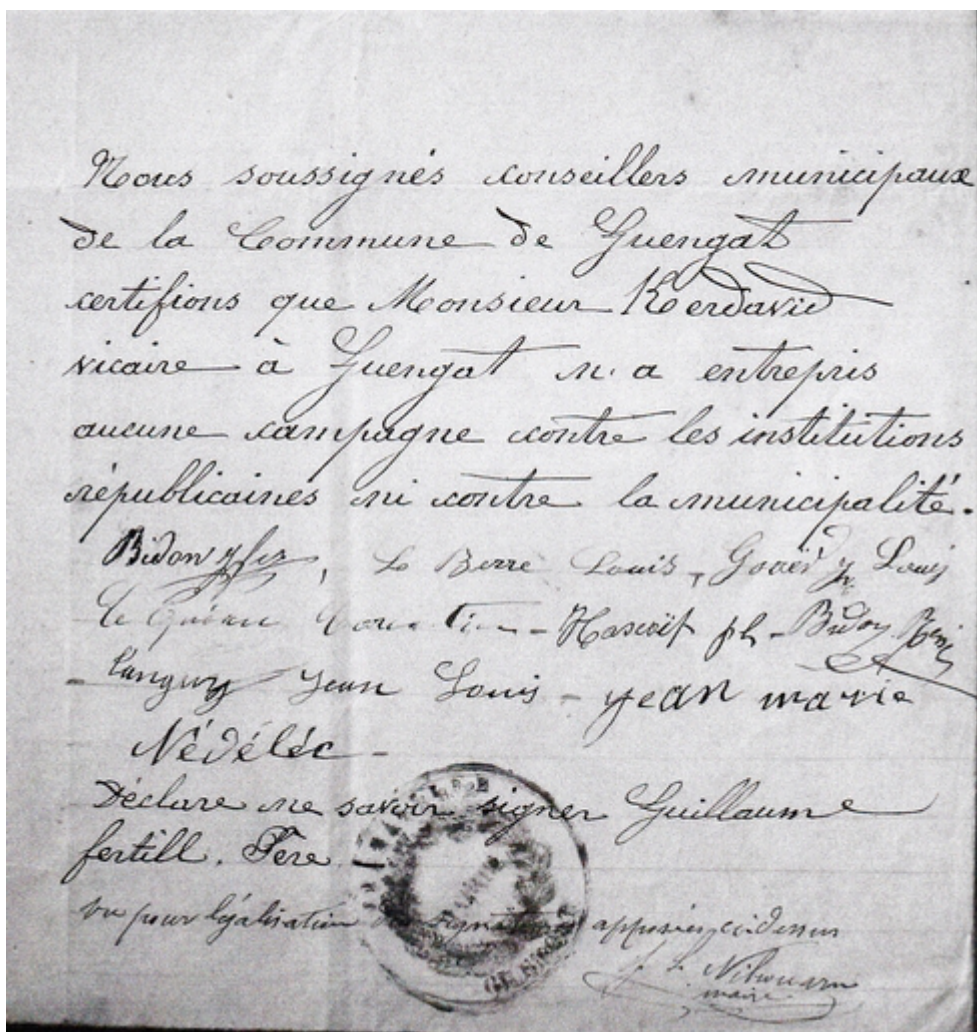 Nous soussignés conseillers municipaux
de la Commune de Guengat
certifions que Monsieur Kerdavid
vicaire à Guengat n'a entrepris
aucune campagne contre les institutions
républicaines ni contre la municipalité.
Bidon Yves, Le Berre Louis, Louis
Le - Hascoët - Bidon
Tanguy Jean Louis - jean marie
Nédélec -
Déclare ne savoir signer Guillaume
fertill. Père
vu pour légalisation signatures apposées ci-dessus
maire